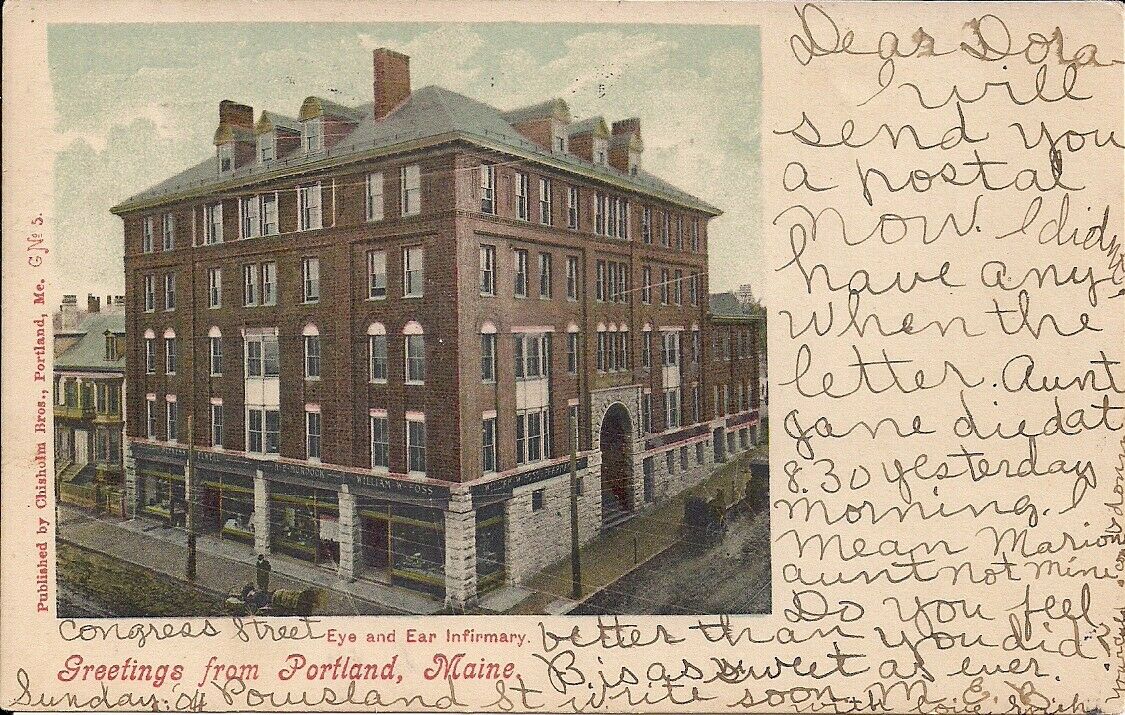 Dear Dora
I will
send you
a postal
now. I did
have any
When the
letter. Aunt
Jane died at
8.30 yesterday
morning. I
mean Marion
aunt not mine
Do you feel
better than you did?
B. is as sweet as ever.
Write soon. M. E. B.
with love
Congress Street
Sunday. '04 Powsland St
Eye and Ear Infirmary.
Greetings from Portland, Maine.
Published by Chisholm Bros., Portland, Me. G No 5.
WILLIAM W. FOSS